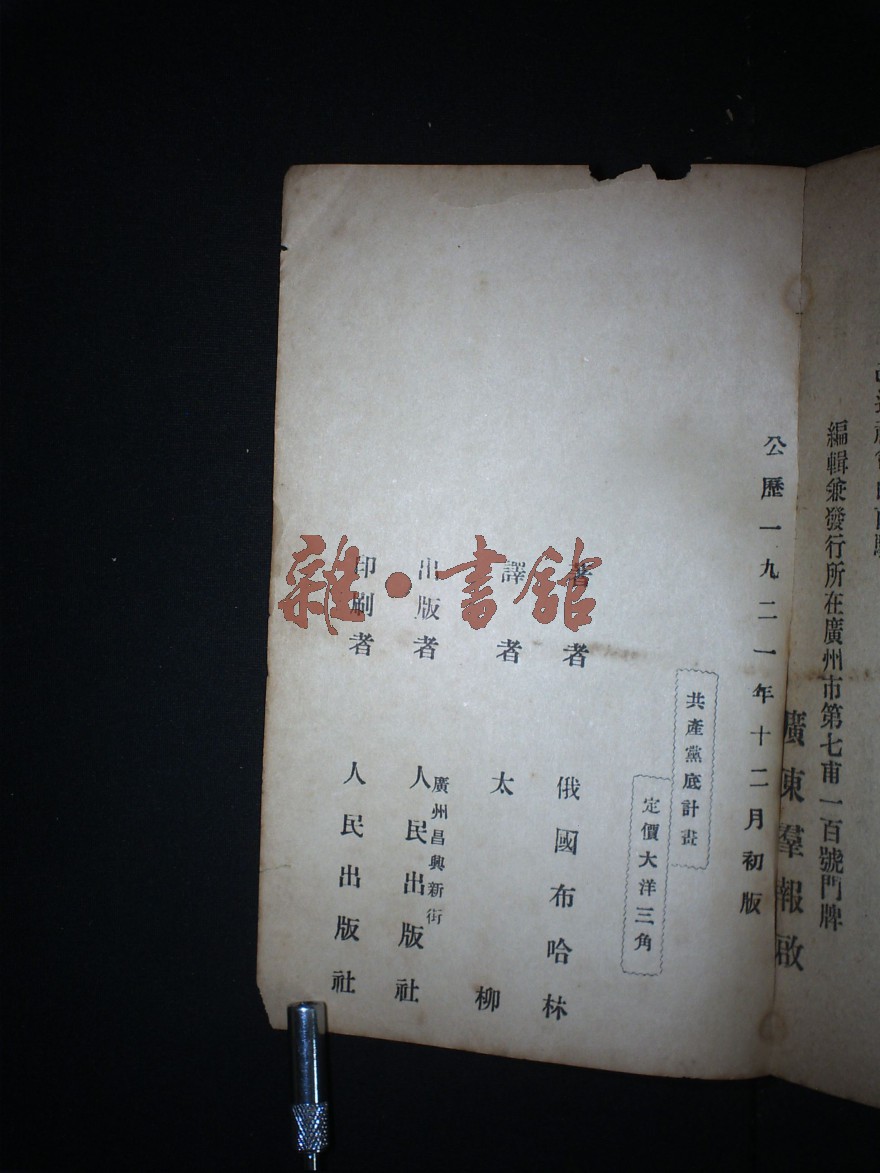 編輯兼發行所在廣州市第七甫一百號門牌
廣東羣報啟
公歷一九二一年十二月初版
共產黨底計畫
定價大洋三角
著者 俄國布哈林
譯者 太柳
出版者 廣州昌興新街 人民出版社
印刷者 人民出版社
雜·書舘